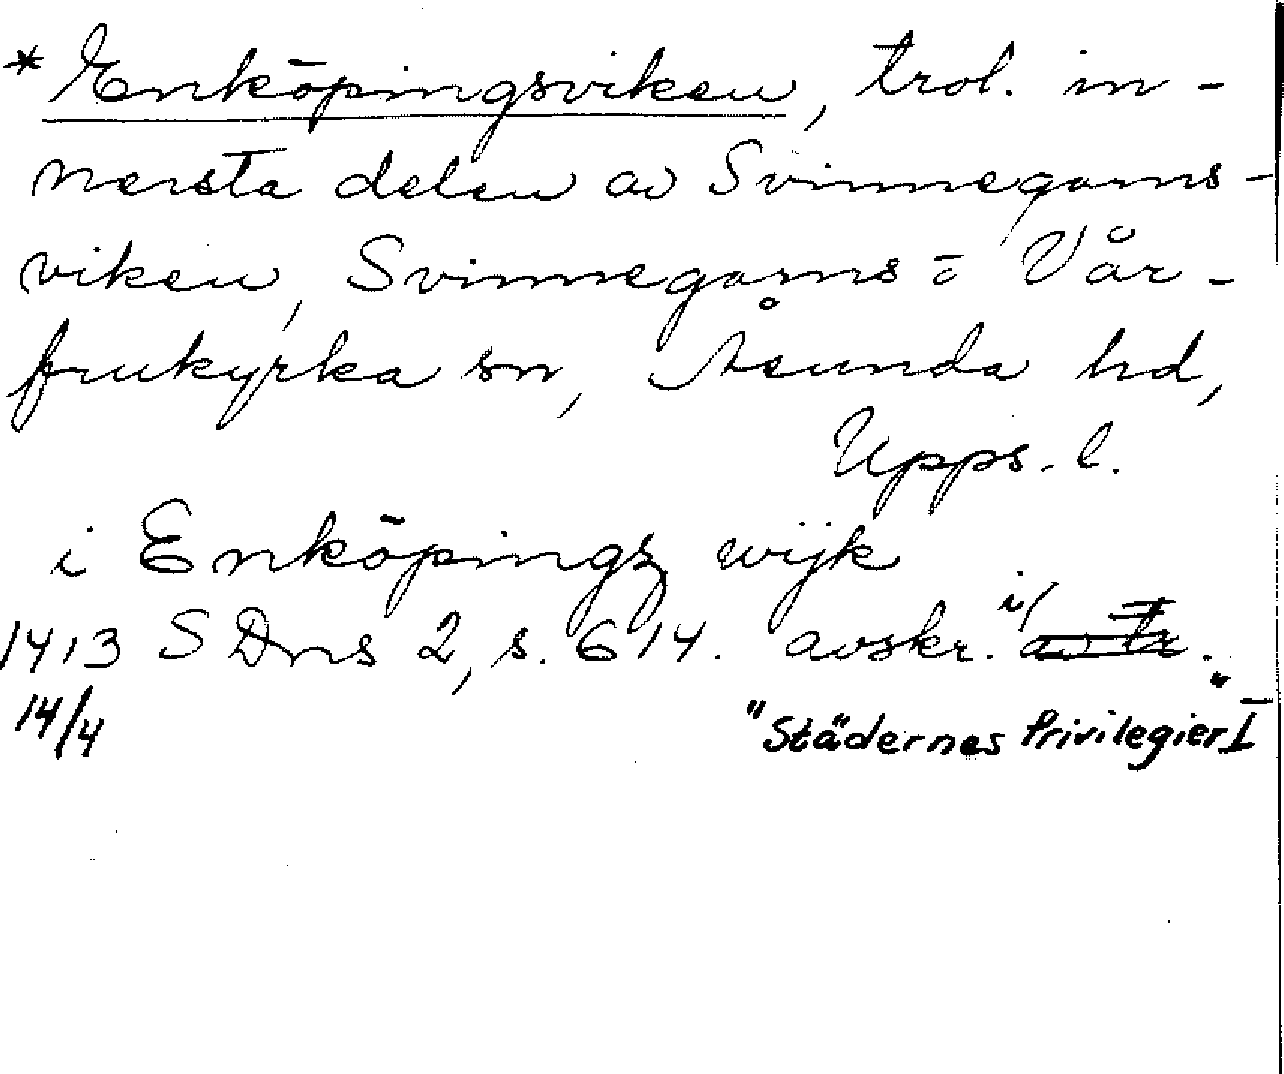 * Enköpingsviken, trol. in-
nersta delen av Svinnegarns-
viken, Svinnegarns- o Vår-
frukyrka sn, Åsunda hd,
Upps. l.
i Enköpings wijk
1413 SDns 2, s. 614. avskr. i
14/4 "Städernes Privilegier I"